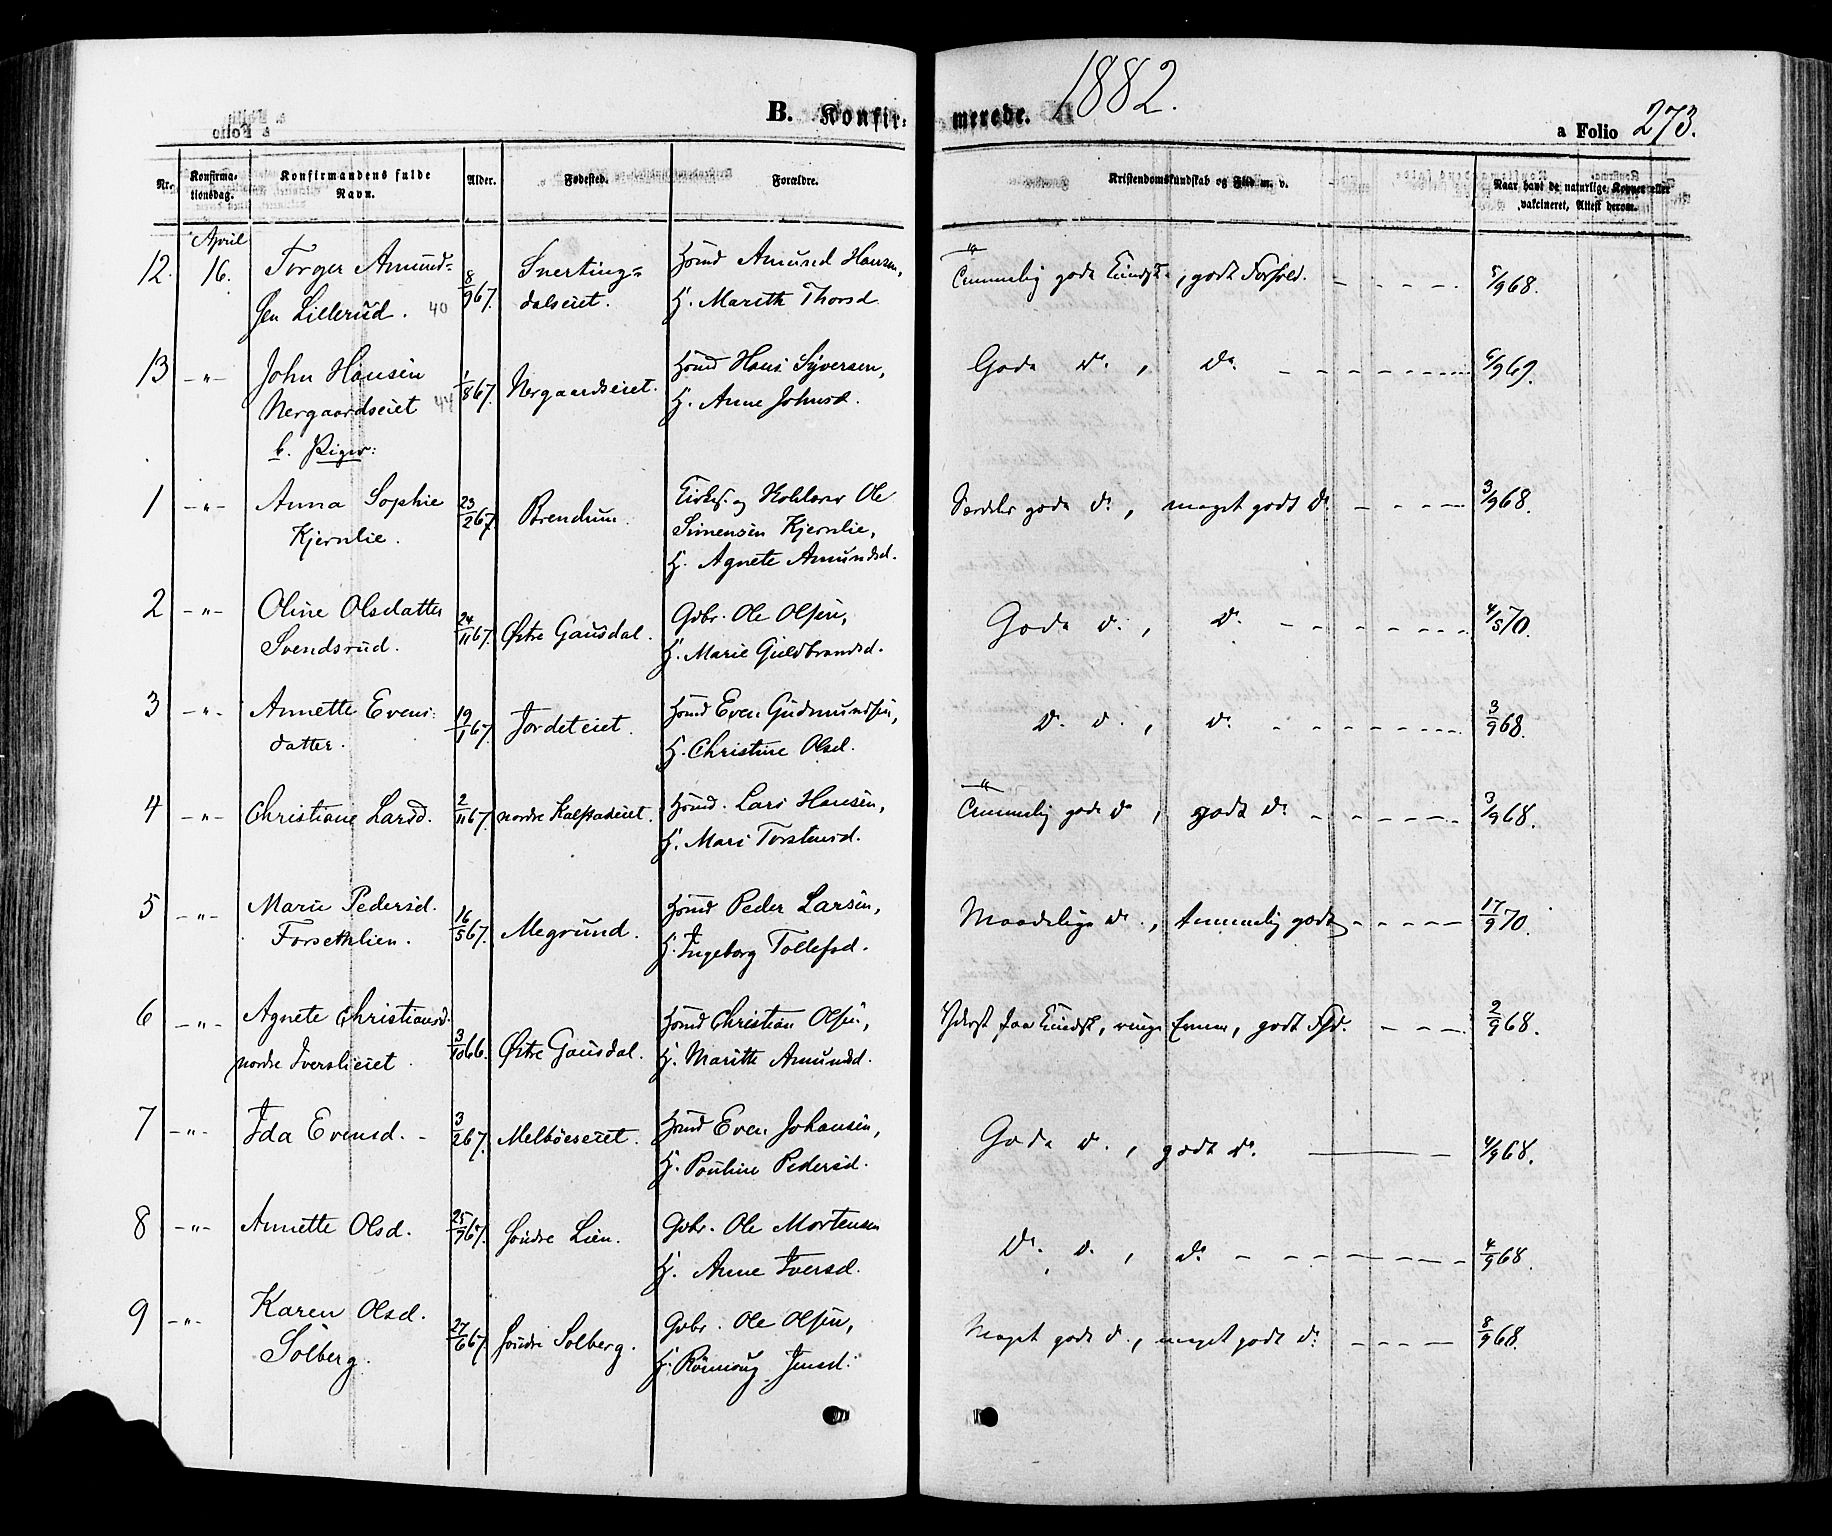 B. Konfirmerede. 1882.
a Folio 273.
Nr. Konfirmationsdag. Konfirmandens fulde Navn. Alder. Fødested. Forældre. Kristendomskundskab og Flid m. v. Naar havt de naturlige Kopper eller vakcineret, Attest derom.
April
12. 16. Torger Amund- 8/9 67. Snerting- Hmd Amund Hansen, Temmelig gode Kundsk., godt Forhold. 5/9 68.
sen Lillerud. 40 dalseiet. H. Marith Thorsd
13 -"- John Hansen 1/8 67. Nergaardseiet. Hmd Hans Syversen, Gode do., do. 6/9 69.
Nergaardseiet 44 H. Anne Johnsd.
b. Piger:
1 -"- Anna Sophie 23/2 67 Brendum. Kirkes. og Skolelærer Ole Særdeles gode do, meget godt do 3/9 68.
Kjernlie. Simensen Kjernlie,
H. Agnete Amundsd.
2 -"- Oline Olsdatter 24/11 67. Østre Gausdal. Gbr. Ole Olsen, Gode d., d. 4/5 70.
Svendsrud. H. Marie Guldbrandsd.
3 -"- Annette Evens- 19/1 67. Jordeteiet. Hmd Even Gudmundsen, d. d., d. 3/9 68.
datter. H. Christine Olsd.
4 -"- Christiane Larsd. 2/11 67. nordre Kalstadeiet. Hmd. Lars Hansen, Temmelig gode do, godt do. 3/9 68.
H. Mari Torstensd.
5 -"- Marie Pedersd. 16/5 67. Megrund. Hmd Peder Larsen, Maadelige do, temmelig godt 17/9 70.
Forsethlien. H. Ingeborg Tollefsd.
6 -"- Agnete Christiansd. 3/10 66. Østre Gausdal. Hmd Christian Olsen, Yderst faa Kundsk, ringe Evner, godt Fhd. 2/9 68.
nordre Iverslieiet. H. Marith Amundsd.
7 -"- Ida Evensd. 3/2 67. Melbøeseiet. Hmd Even Johansen, Gode d., godt do. 4/9 68.
H. Pouline Pedersd.
8 -"- Annette Olsd. 25/9 67. søndre Lien. Gbr. Ole Mortensen do. d., do 4/9 68.
H. Anne Iversd.
9 -"- Karen Olsd. 27/6 67. søndre Solberg. Gbr. Ole Olsen, Meget gode d., meget godt do 8/9 68.
Solberg. H. Rønnaug Jensd.